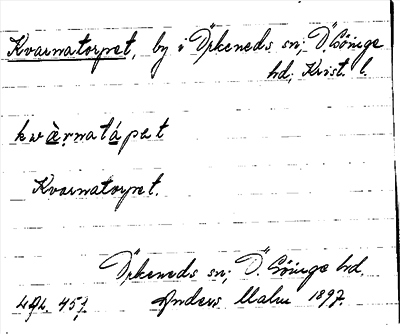 Kvarnatorpet, by i Örkeneds sn; Ö. Göinge
hd; Krist. l.
kwàṛnatápet
Kvarnatorpet.
Örkeneds sn; Ö. Göinge hd.
Anders Malm 1897.